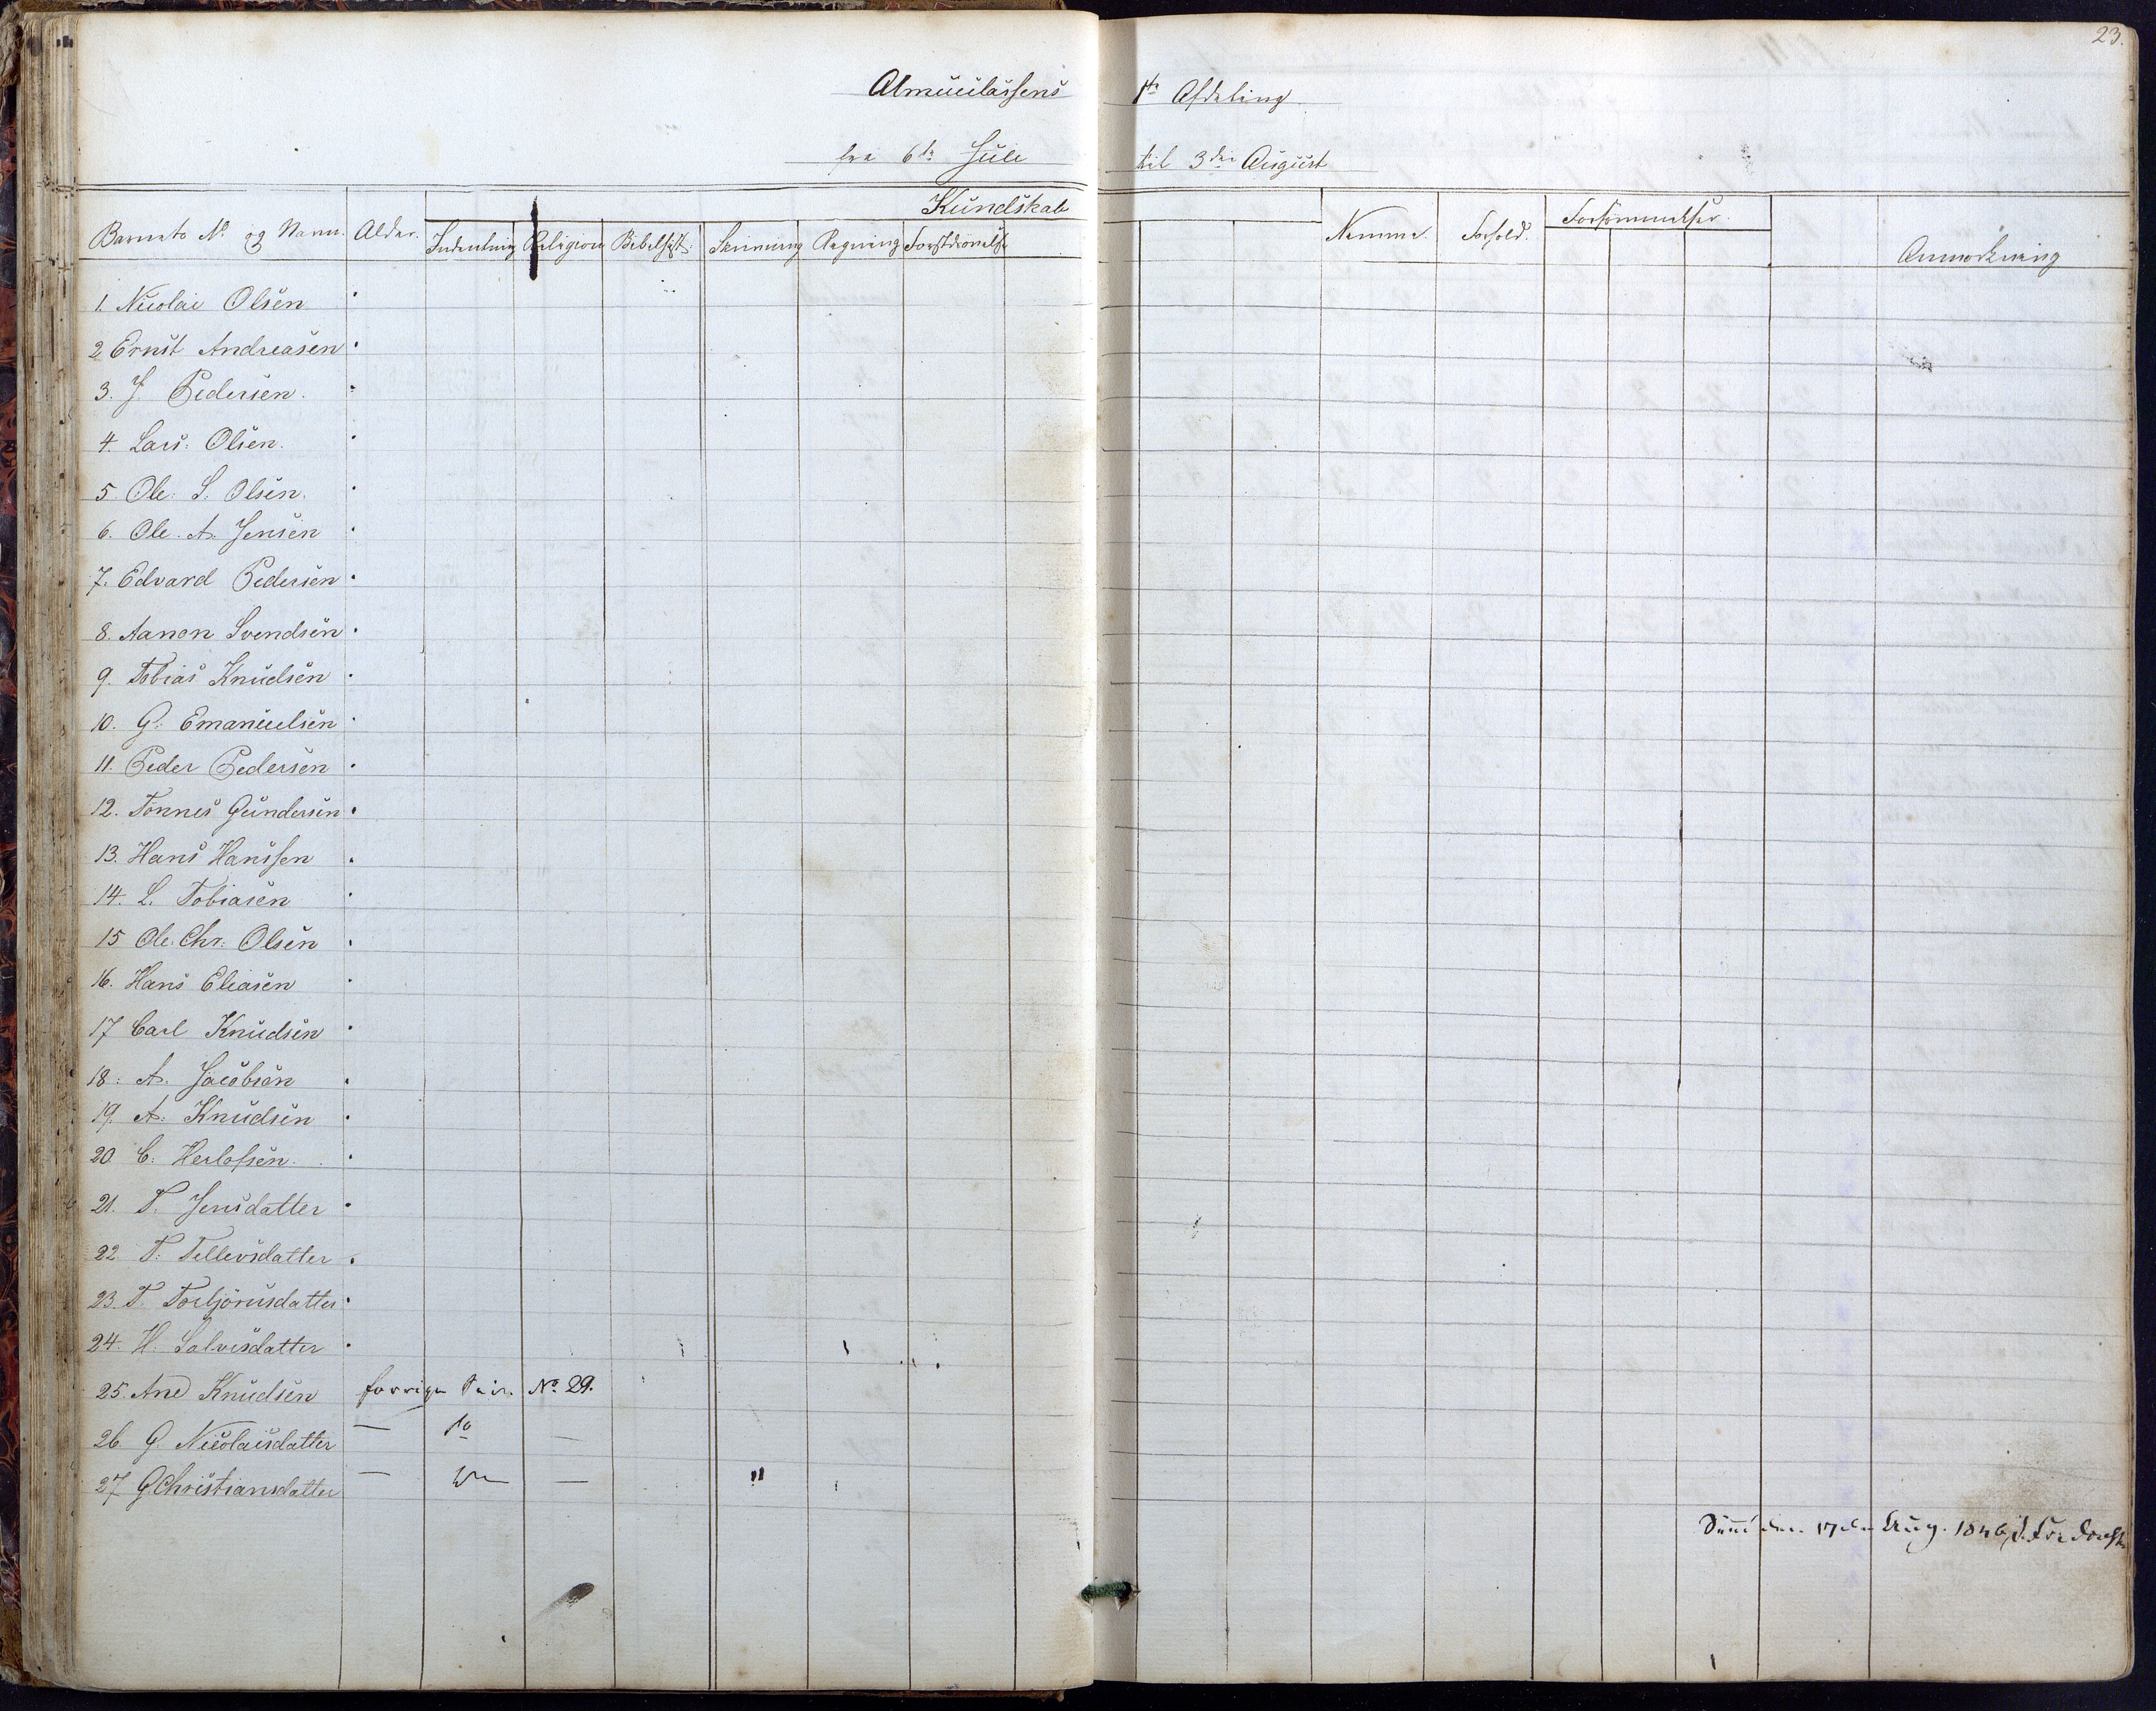 23.
Almueclassens 1ste Afdeling.
fra 6te Juli til 3die August
Kundskab
Barnets No og Navn. Alder. Indenlæsning Religion Bibelhist: Skrivning Regning Forstdsøvelse Nemme. Forhold. Forsømmelser. Anmærkning
1. Nicolai Olsen
2 Ernst Andreasen
3. J. Pedersen.
4. Lars: Olsen.
5. Ole: S. Olsen.
6. Ole. A. Jensen
7. Edvard Pedersen
8. Aanon Svendsen
9. Tobias Knudsen
10. G: Emanuelsen
11. Peder Pedersen
12. Tønnes Gundersen
13. Hans Hanssen
14. L. Tobiasen
15 Ole. Chr. Olsen
16. Hans Eliasen
17 Carl Knudsen
18: A. Jacobsen
19. A. Knudsen
20. C. Herlofsen.
21. T. Jensdatter
22. T. Tellevsdatter
23. T. Torbjörnsdatter
24. H. Salvesdatter
25. Ane Knudsen forrige No 29.
26. G. Nicolaisdatter — — 
27 G. Christiansdatter — — "
den 17de Aug. 1846